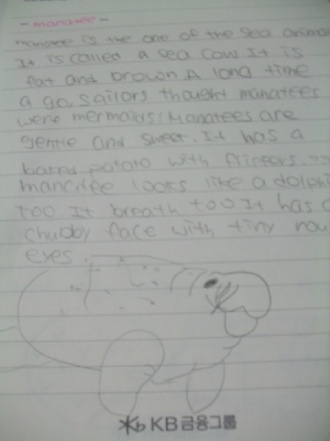 - manatee -
manatee is the one of the sea animal
It is called a sea cow. It is
fat and brown A long time
a go, sailors thought manatees
were mermaids! Manatees are
gentle and sweet. It has a
baked potato with flippers.
manatee looks like a dolphi
too It breath too It has a
chubby face with tiny rou
eyes.
KB금융그룹